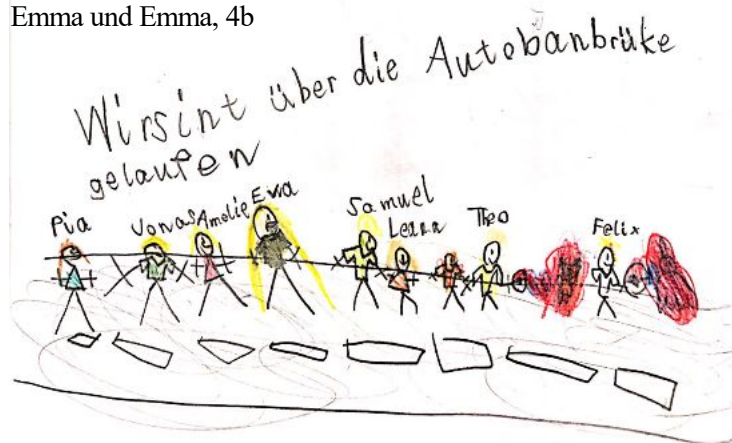 Emma und Emma, 4b
Wirsint über die Autobanbrüke
gelaufen
Pia Jonas Amelie Ewa Samuel Leann Theo Felix